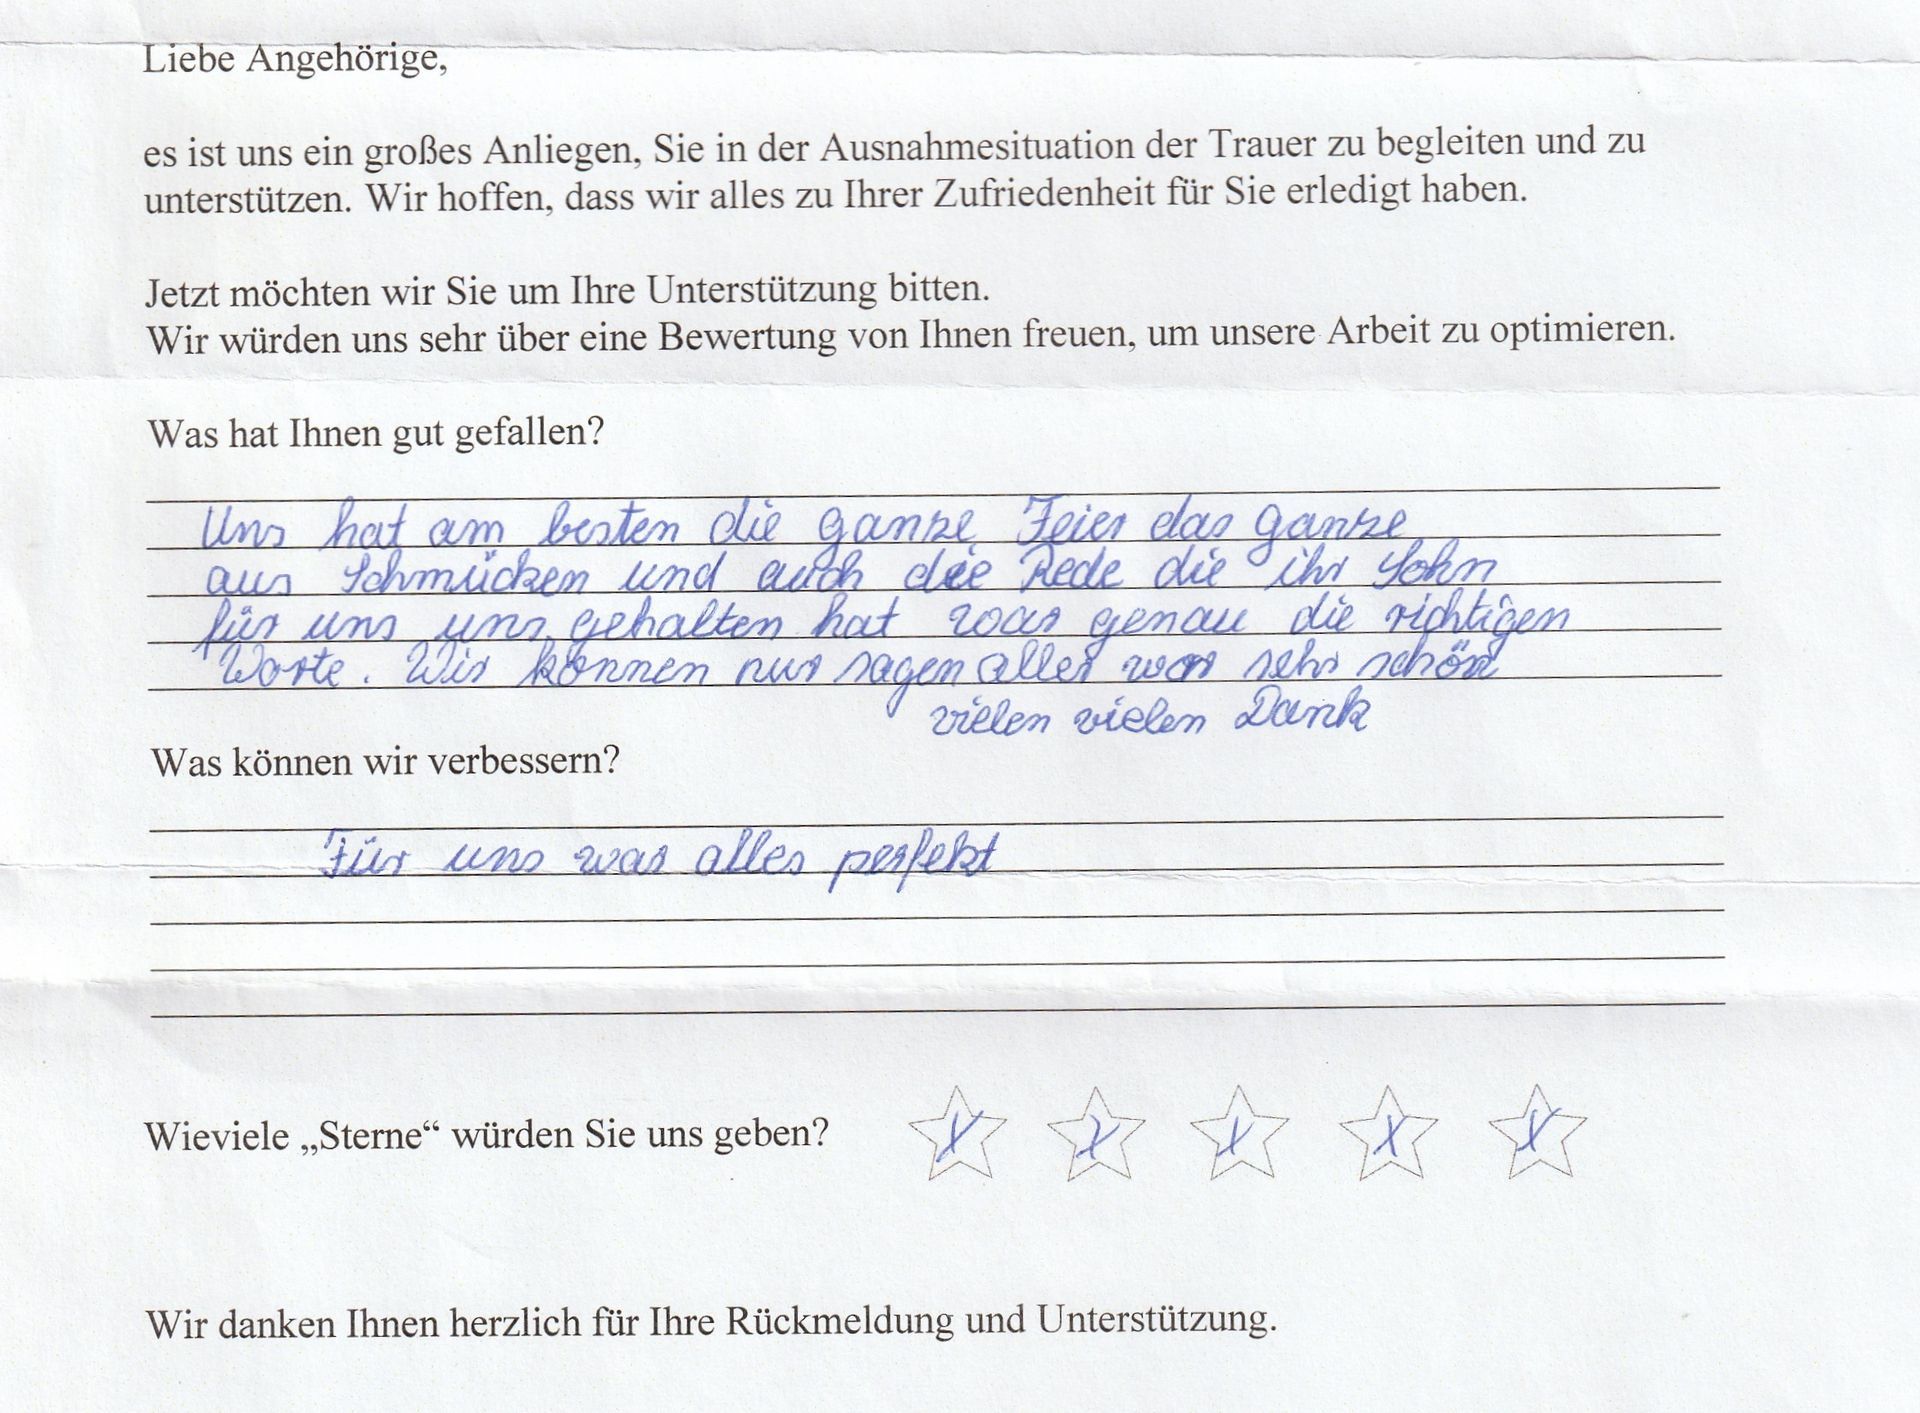 Liebe Angehörige,
es ist uns ein großes Anliegen, Sie in der Ausnahmesituation der Trauer zu begleiten und zu
unterstützen. Wir hoffen, dass wir alles zu Ihrer Zufriedenheit für Sie erledigt haben.
Jetzt möchten wir Sie um Ihre Unterstützung bitten.
Wir würden uns sehr über eine Bewertung von Ihnen freuen, um unsere Arbeit zu optimieren.
Was hat Ihnen gut gefallen?
Uns hat am besten die ganze Feier das ganze
aus Schmücken und auch die Rede die ihr Sohn
für uns uns gehalten hat war genau die richtigen
Worte. Wir können nur sagen alles war sehr schön
vielen vielen Dank
Was können wir verbessern?
Für uns war alles perfekt
Wieviele „Sterne“ würden Sie uns geben? X X X X X
Wir danken Ihnen herzlich für Ihre Rückmeldung und Unterstützung.